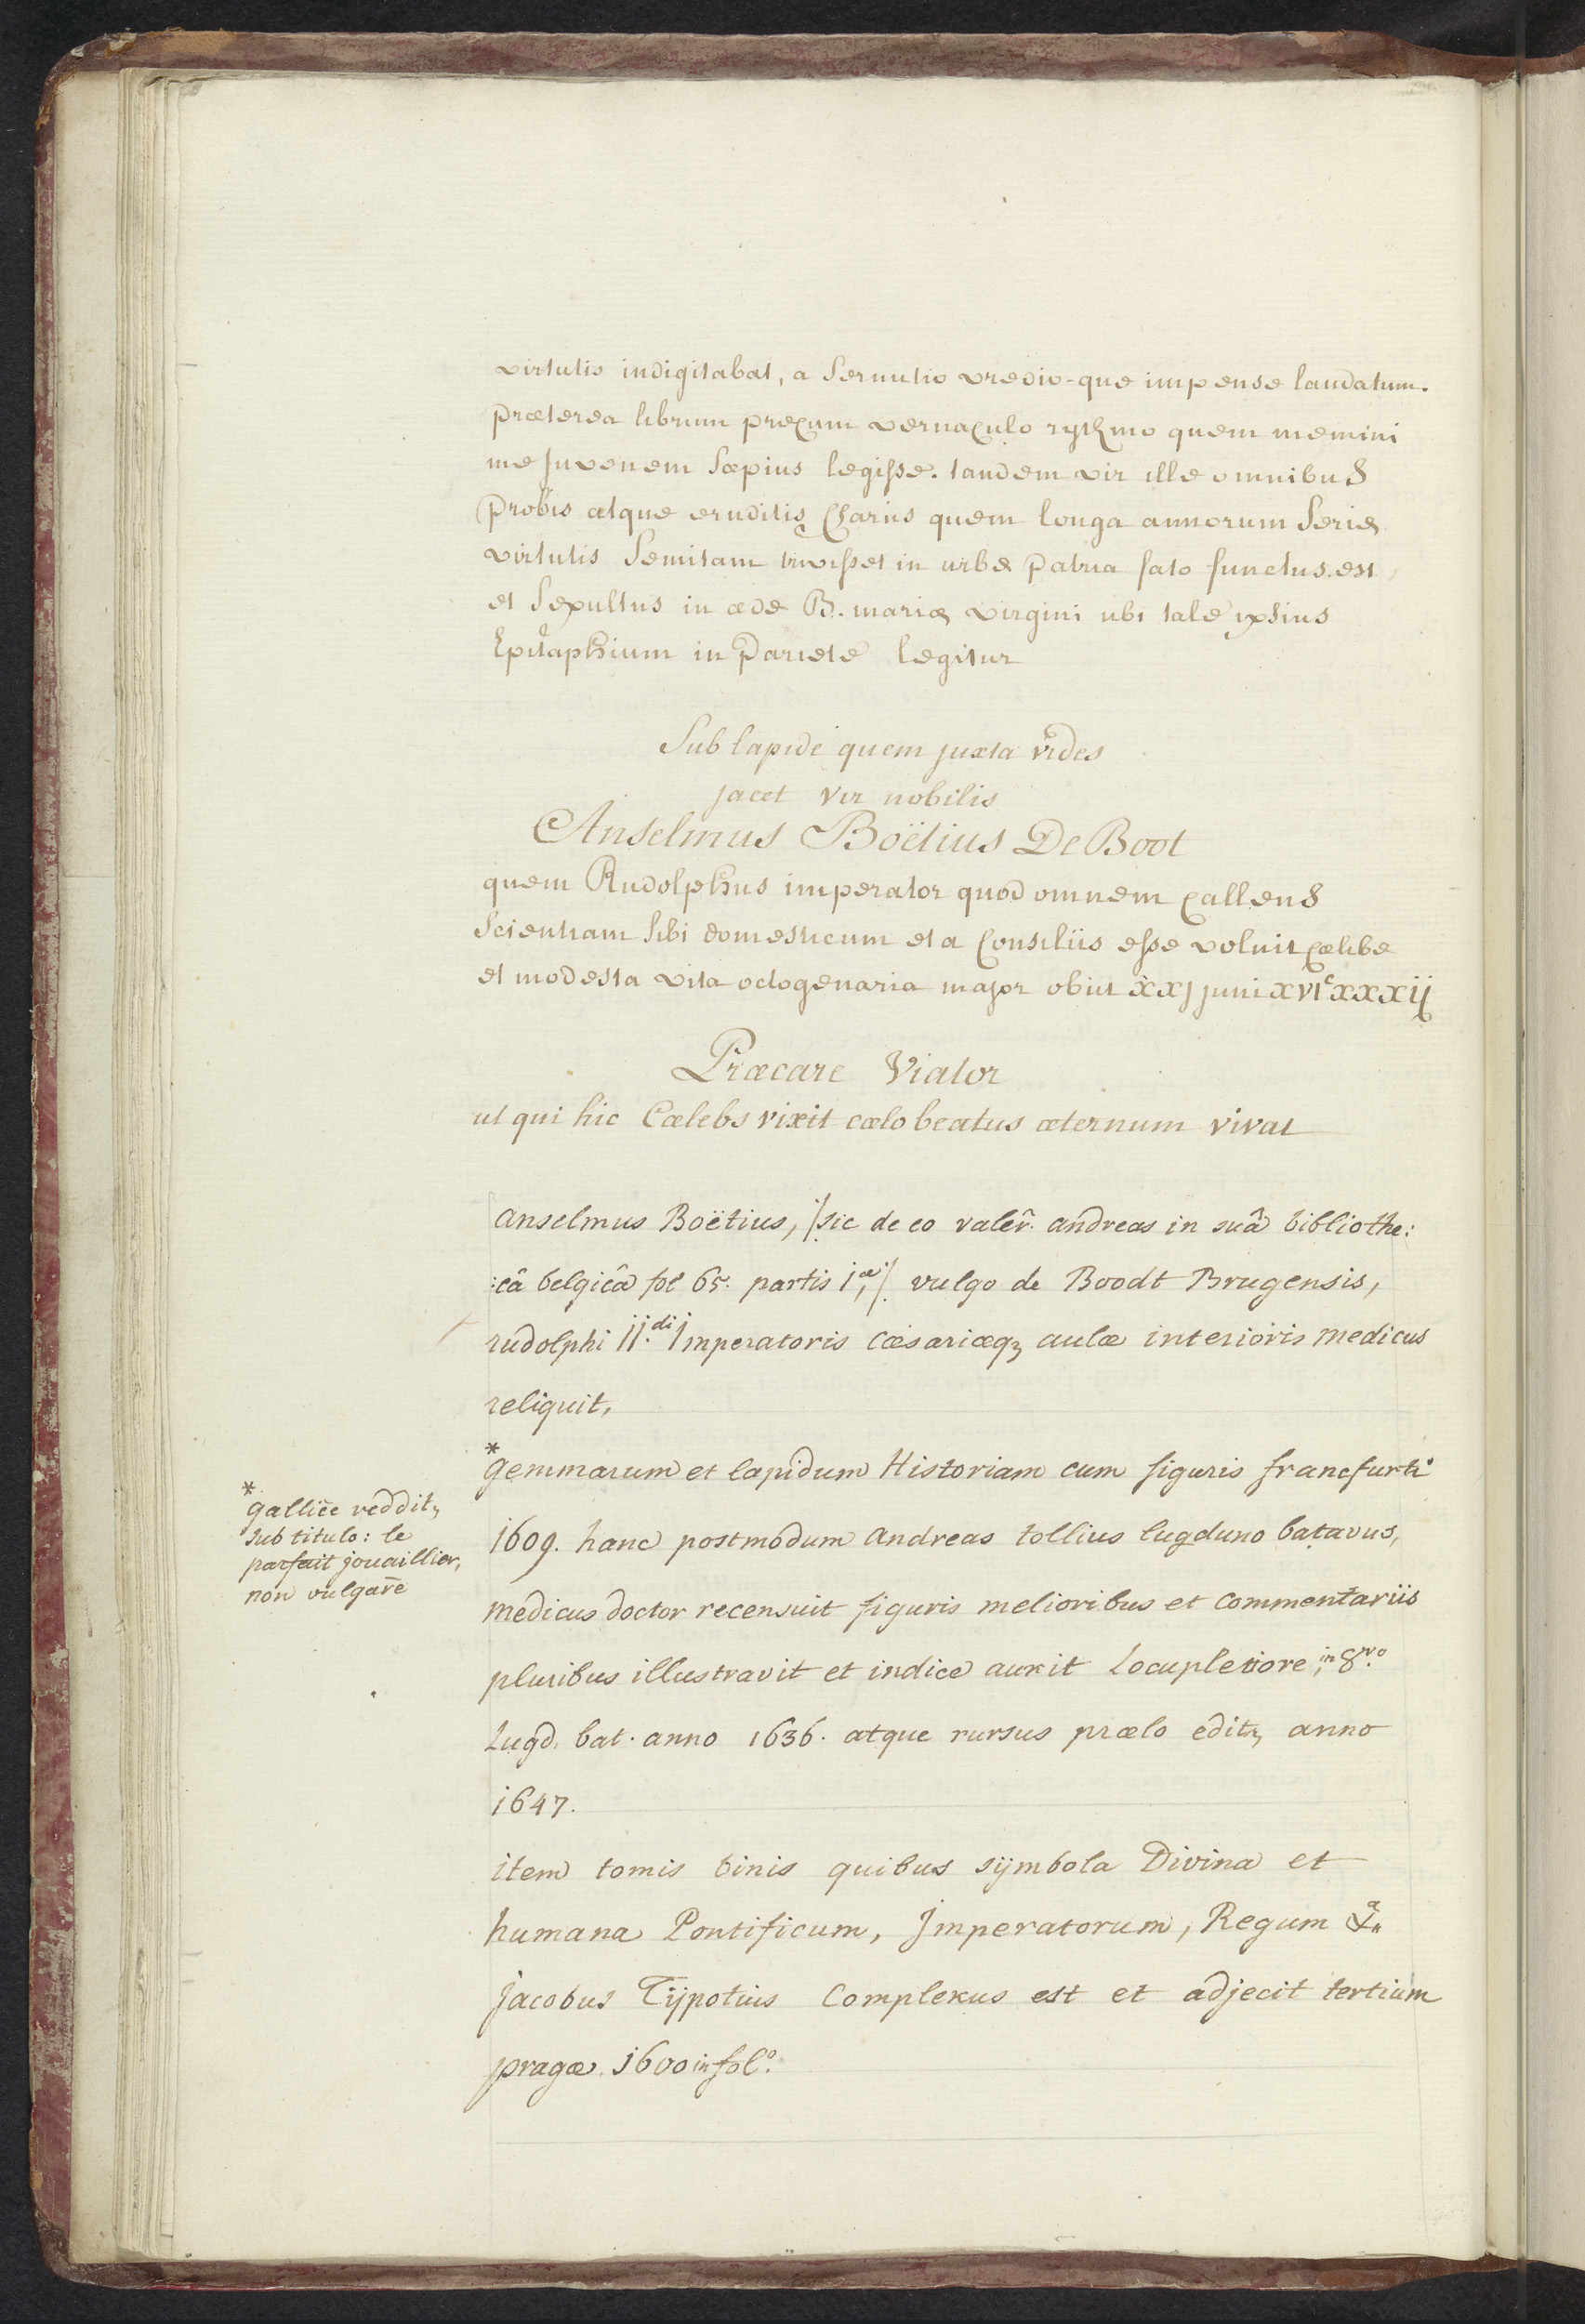 virtutis indigitabat, a Sernutio vredio-que impense laudatum.
præterea librum precum vernaculo rythmo quem memini
me juvenem Sæpius legisse. tandem vir ille omnibus
probis atque eruditis Charus quem longa annorum Serie
virtutis Semitam trivisset in urbe patria fato functus est
et Sepultus in æde B. mariæ virgini ubi tale ipsius
Epitaphium in pariete legitur
Sub lapide quem juxta vides
jacet vir nobilis
Anselmus Boëtius De Boot
quem Rudolphus imperator quod omnem callens
Scientiam sibi domesticum et a Consiliis esse voluit cœlibe
et modesta vita octogenaria major obiit xxj juni xvjᶜxxxij
Præcare Viator
ut qui hic Cœlebs vixit cœlo beatus æternum vivat
anselmus Boëtius, /:sic de eo valer̂. andreas in suâ bibliothe:
:câ belgicâ fol 65. partis 1.æ:/ vulgo de Boodt Brugensis,
rudolphi II.di Imperatoris Cæsariæq₃ aulæ interioris medicus
reliquit,
*gemmarum et lapidum Historiam cum figuris francfurti
1609. hanc postmodum andreas tollius lugduno batavus,
medicus doctor recensuit figuris melioribus et commentariis
pluribus illustravit et indice auxit locupletiore, in 8.vo
Lugd. bat. anno 1636. atque rursus prælo editr, anno
1647.
item tomis binis quibus sÿmbola Divina et
humana Pontificum, Imperatorum, Regum &a.
jacobus Tÿpotius complexus est et adjecit tertium
pragæ. 1600 in fol.º
*
gallicē redditr,
sub titulo: le
parfait jouaillier,
non vulgarē